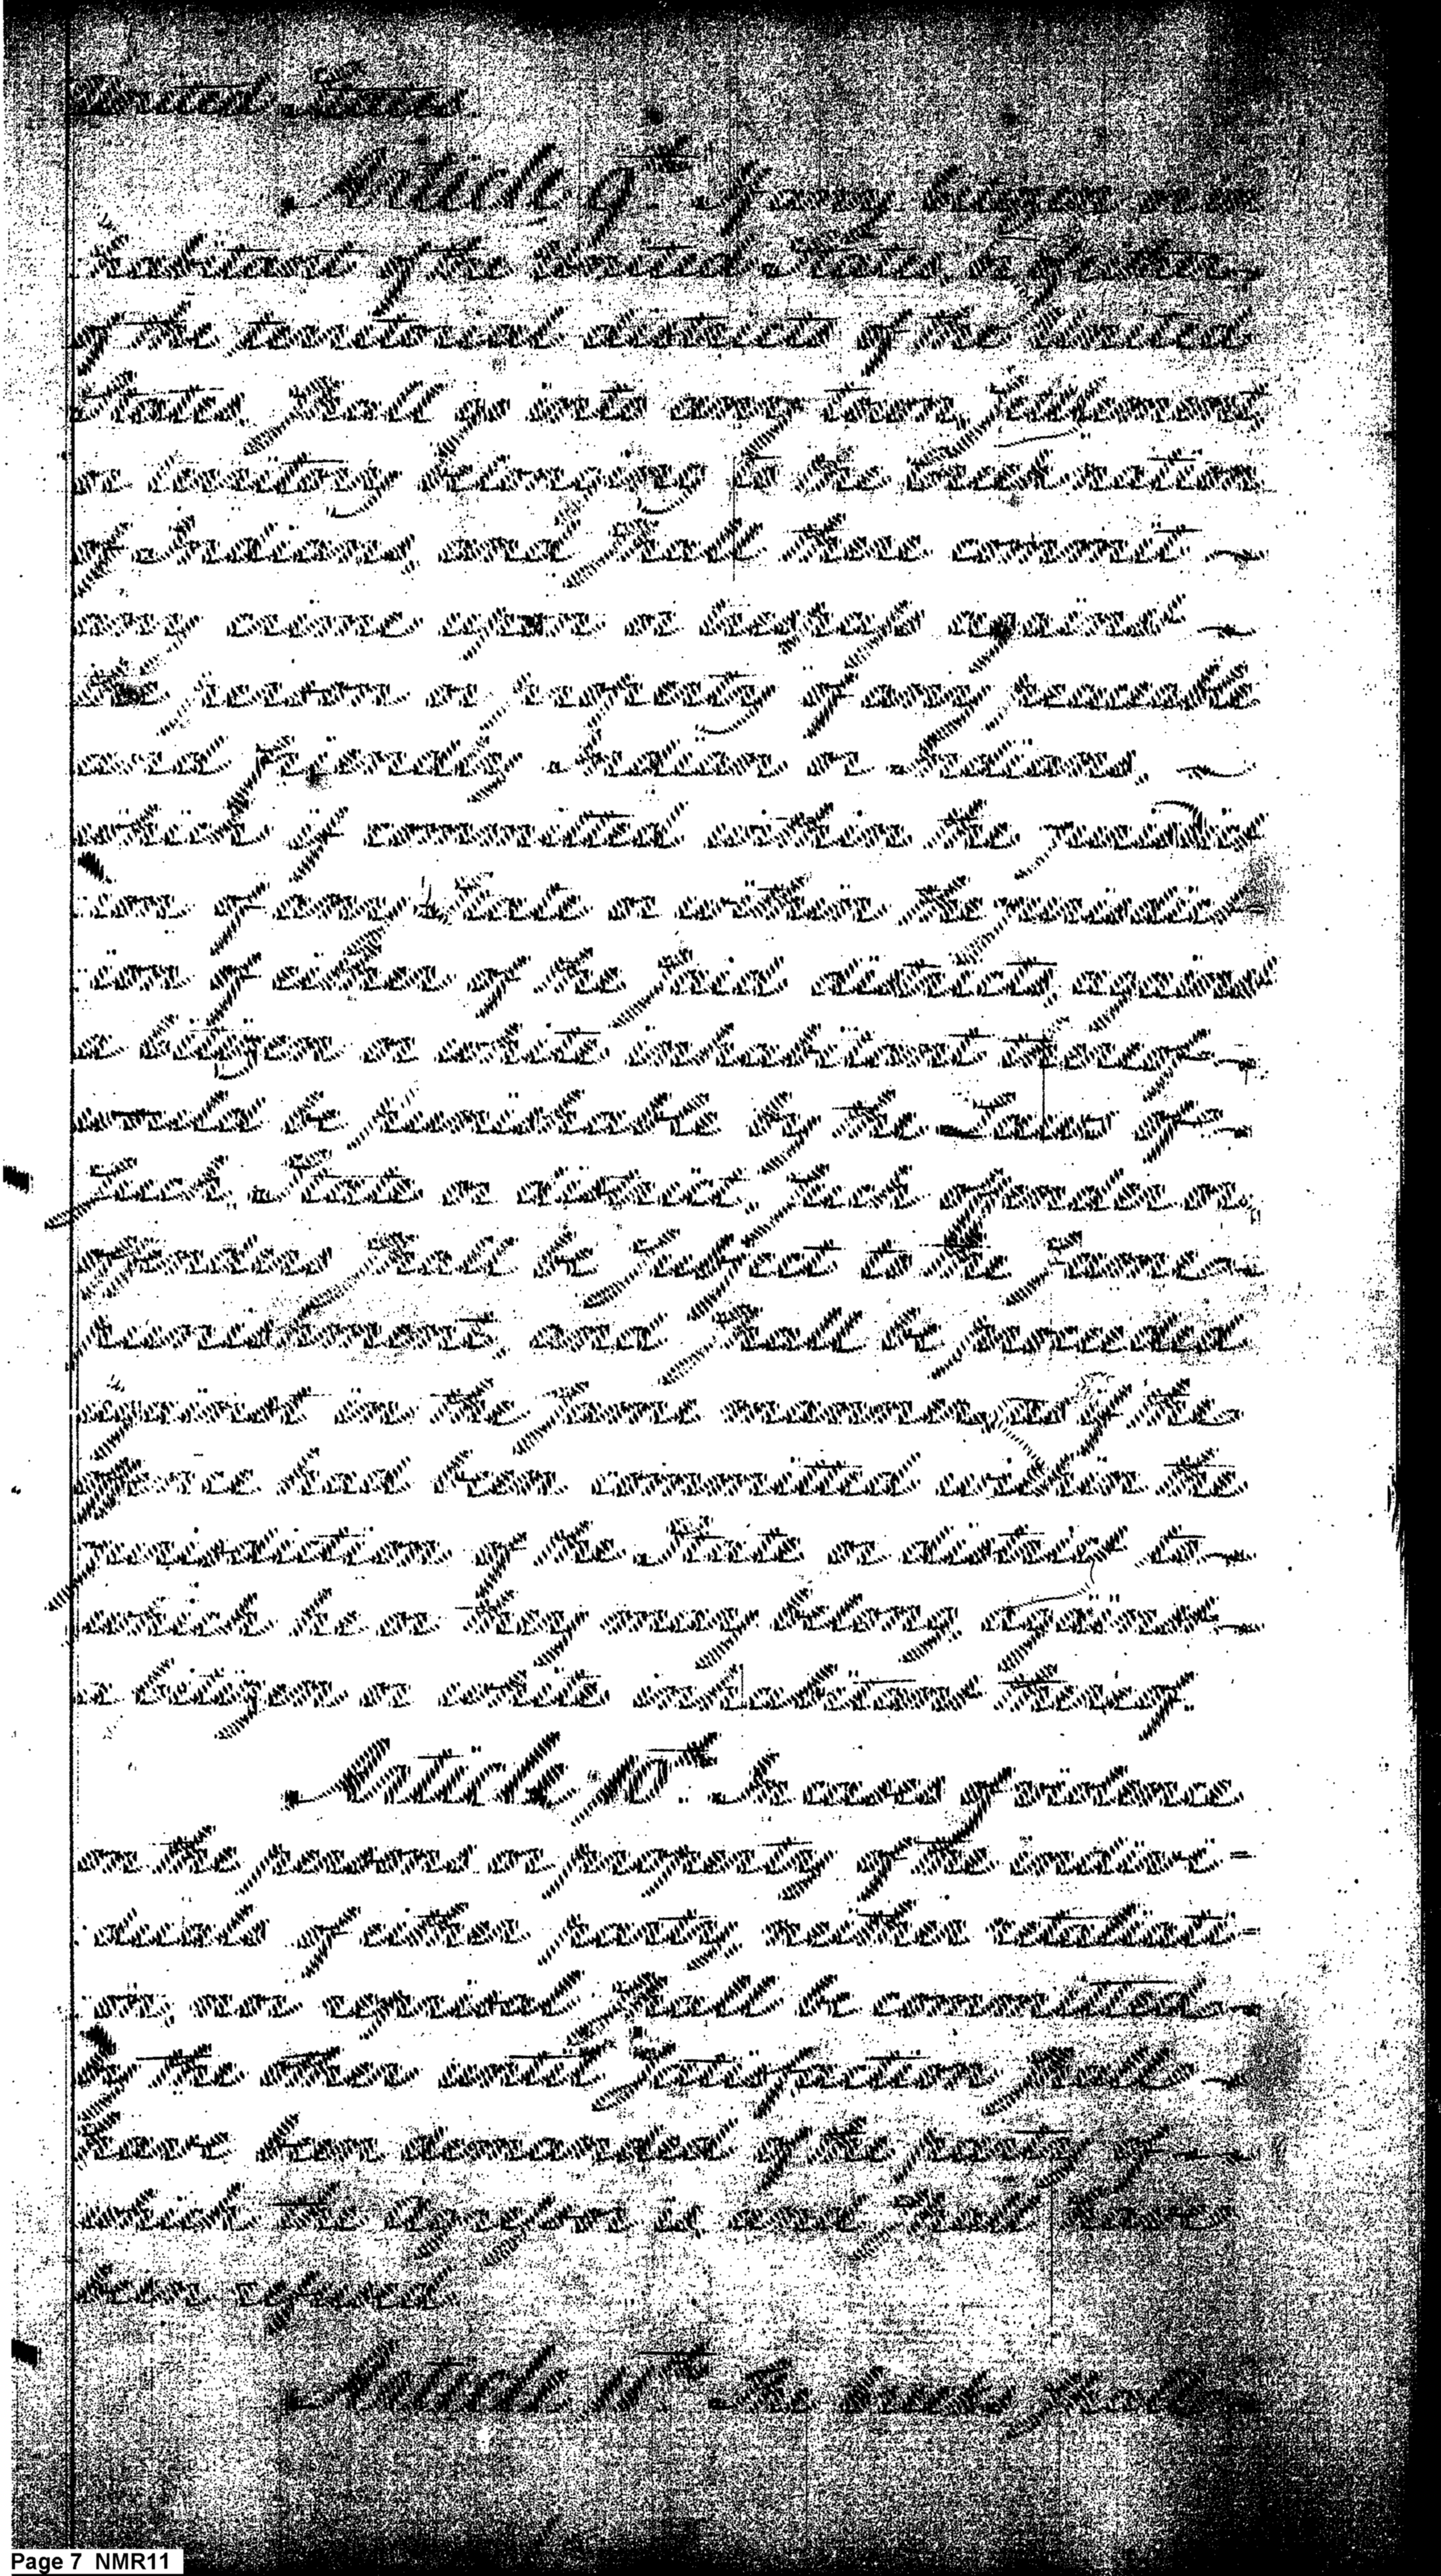 United States.
Article 9th. If any citizen or in
habitant of the United States, or of either
of the territorial districts of the United
States, shall go into any town, settlement
or territory belonging to the Creek nation
of Indians, and shall there commit
any crime upon or trespass against
the person or property of any peaceable
and friendly Indian or Indians,
which if committed within the jurisdic
:ion of any State or within the jurisdict
:ion of either of the said districts, against
a citizen or white inhabitant thereof
would be punishable by the Laws of
such State or district, such offender or
offenders shall be subject to the same
punishment, and shall be proceeded
against in the same manner, as if the
offence had been committed within the
jurisdiction of the State or district to
which he or they may belong, against
a citizen or white inhabitant thereof.
Article 10th. In cases of violence
on the persons or property of the indivi=
:duals of either party, neither retaliati=
:on, nor reprisal shall be committed
by the other until satisfaction shall
have been demanded of the party of
which the aggressor is, and shall have
been refused.
Article 11th. The Creeks shall
Page 7 NMR11